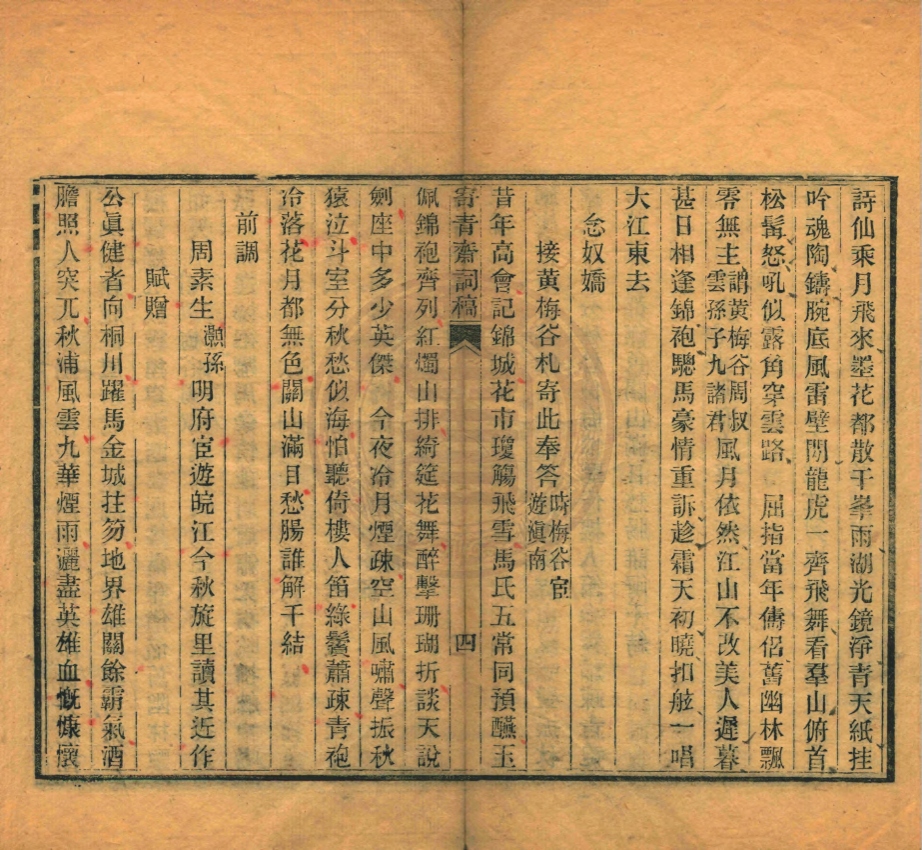 詩仙乘月飛來墨花都散千峯雨湖光鏡淨青天紙挂
吟魂陶鑄腕底風雷壁間龍虎一齊飛舞看羣山俯首
松髯怒吼似露角穿雲路　屈指當年儔侶舊幽林飄
零無主謂黃梅谷周叔雲孫子九諸君風月依然江山不改美人遲暮
甚日相逢錦袍驄馬豪情重訴趁霜天初曉扣舷一唱
大江東去
念奴嬌
接黃梅谷札寄此奉答時梅谷宦遊滇南
昔年高會記錦城花市瓊觴飛雪馬氏五常同預醼玉
寄青齋詞稿　四
佩錦袍齊列紅燭山排綺筵花舞醉擊珊瑚折談天說
劍座中多少英傑　今夜冷月煙疎空山風嘯聲振秋
猿泣斗室分秋愁似海怕聽倚樓人笛綠鬢蕭疎青袍
冷落花月都無色關山滿目愁腸誰解千結
前調
周素生灝孫明府宦遊皖江今秋旋里讀其近作
賦贈
公眞健者向桐川躍馬金城拄笏地界雄關餘霸氣酒
膽照人突兀秋浦風雲九華煙雨灑盡英雄血慨慷懷